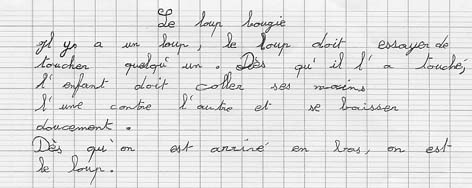 Le loup bougie
Il y a un loup, le loup doit essayer de
toucher quelqu'un. Dès qu'il l'a touché,
l'enfant doit coller ses mains
l'une contre l'autre et se baisser
doucement.
Dès qu'on est arrivé en bas, on est
le loup.